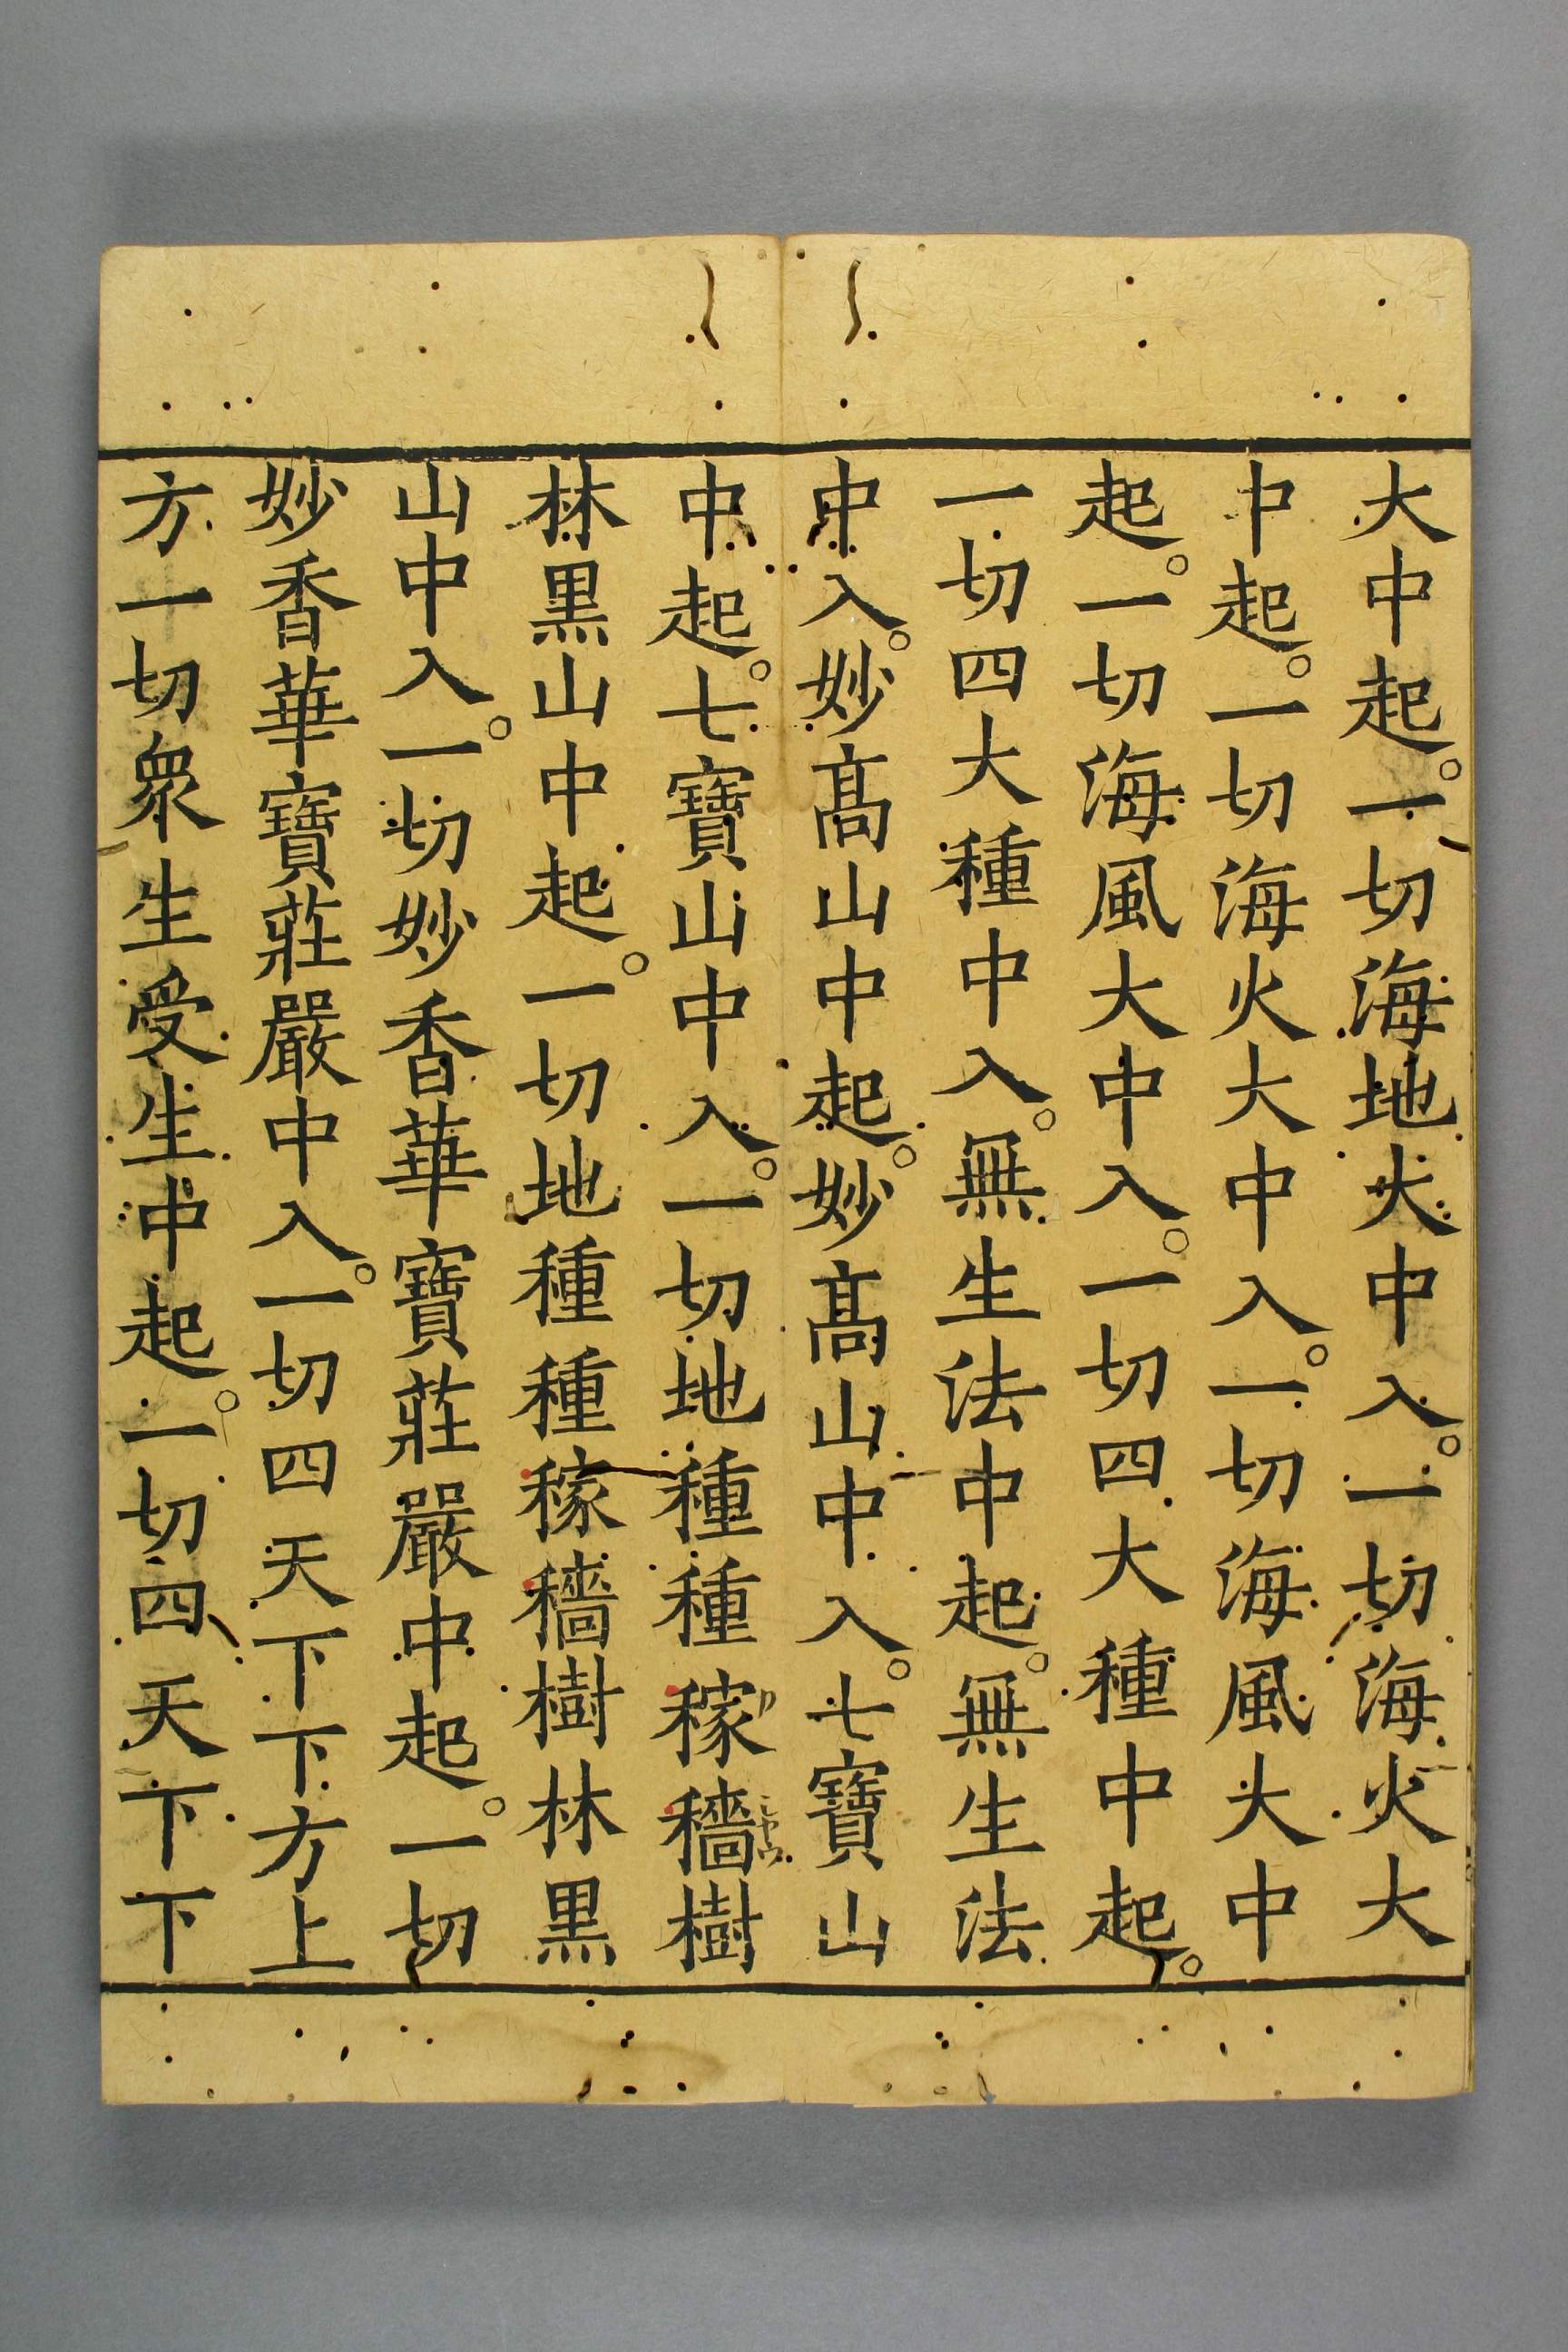 大中起。一切海地大中入。一切海火大
中起。一切海火大中入。一切海風大中
起。一切海風大中入。一切四大種中起。
一切四大種中入。無生法中起。無生法
中入。妙髙山中起。妙髙山中入。七寶山
中起。七寶山中入。一切地種種稼穡樹
林黒山中起。一切地種種稼穡樹林黒
山中入。一切妙香華寶莊嚴中起。一切
妙香華寶莊嚴中入。一切四天下下方上
方一切衆生受生中起。一切四天下下